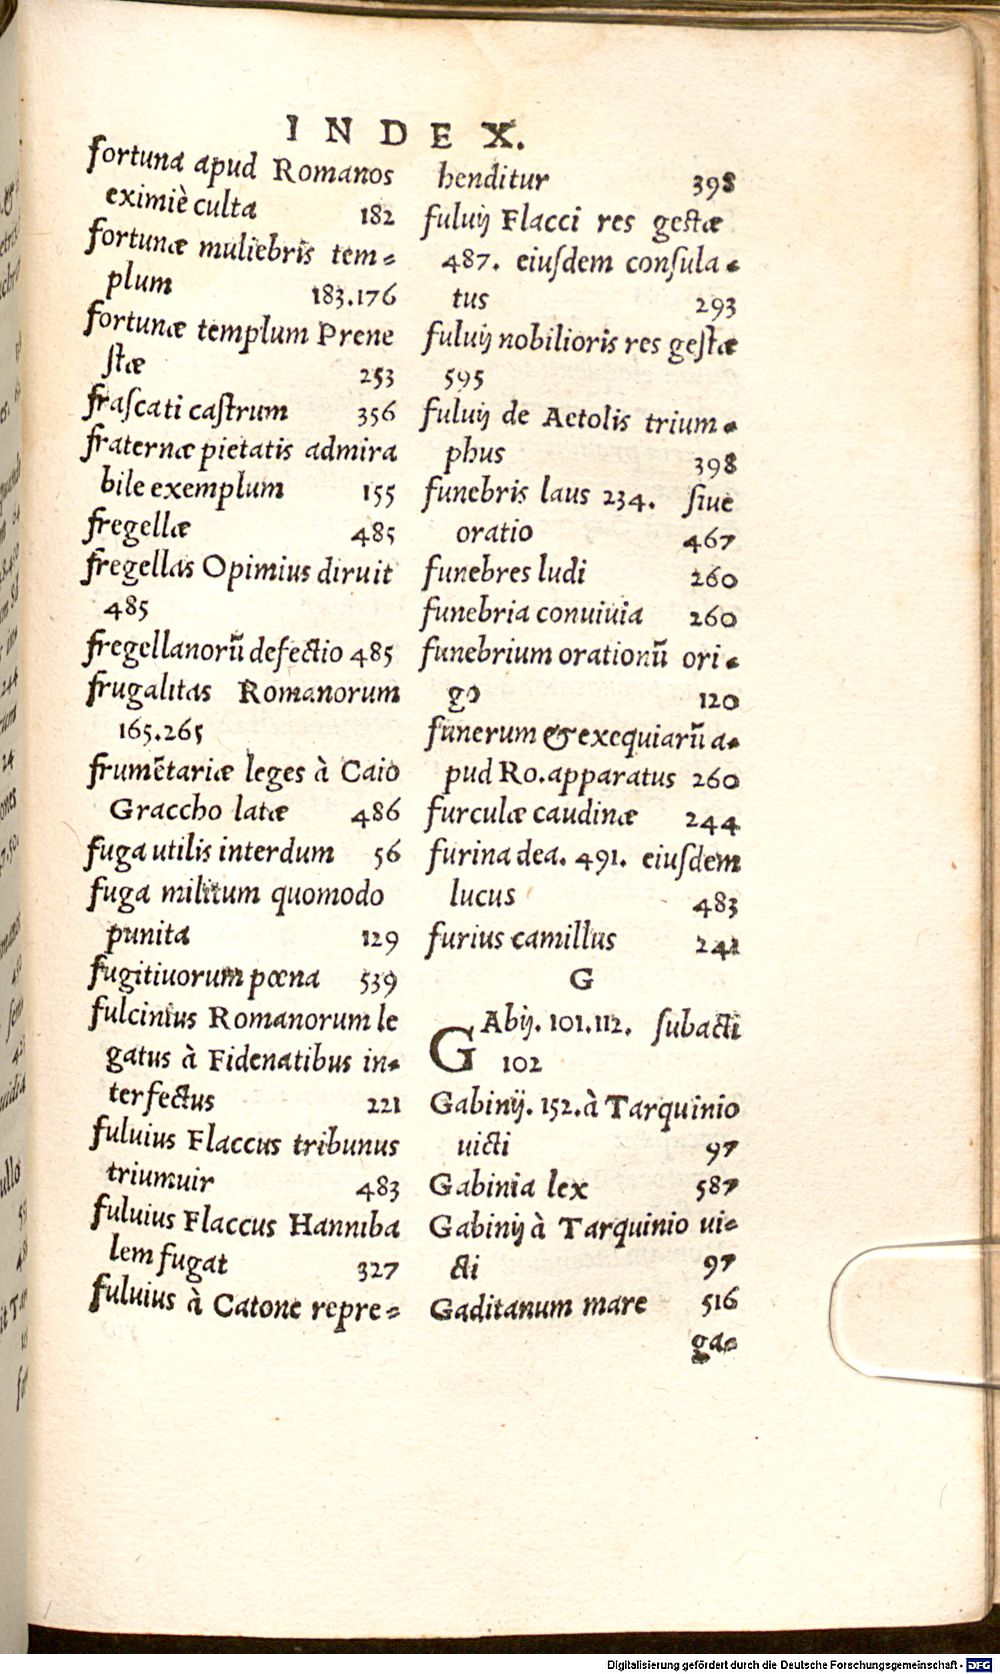 INDEX.
fortuna apud Romanos
eximiè culta 182
fortunæ muliebris tem-
plum 183.176
fortunæ templum Prene
stæ 253
fraſcati caſtrum 356
fraternæ pietatis admira
bile exemplum 155
fregellæ 485
fregellas Opimius diruit
485
fregellanorū defectio 485
frugalitas Romanorum
165.265
frumētariæ leges à Caio
Graccho latæ 486
fuga utilis interdum 56
fuga militum quomodo
punita 129
fugitiuorum pœna 539
fulcinius Romanorum le
gatus à Fidenatibus in-
terfectus 221
fuluius Flaccus tribunus
triumuir 483
fuluius Flaccus Hanniba
lem fugat 327
fuluius à Catone repre-
henditur 398
fuluij Flacci res geſtæ
487. eiuſdem conſula-
tus 293
fuluij nobilioris res geſtæ
595
fuluij de Aetolis trium-
phus 398
funebris laus 234. ſiue
oratio 467
funebres ludi 260
funebria conuiuia 260
funebrium orationū ori-
go 120
funerum & exequiarū a-
pud Ro. apparatus 260
furculæ caudinæ 244
furina dea. 491. eiuſdem
lucus 483
furius camillus 241
G
GAbij. 101.112. ſubacti
102
Gabinij. 152. à Tarquinio
uicti 97
Gabinia lex 587
Gabinij à Tarquinio ui-
cti 97
Gaditanum mare 516
ga-
Digitalisierung gefördert durch die Deutsche Forschungsgemeinschaft - DFG